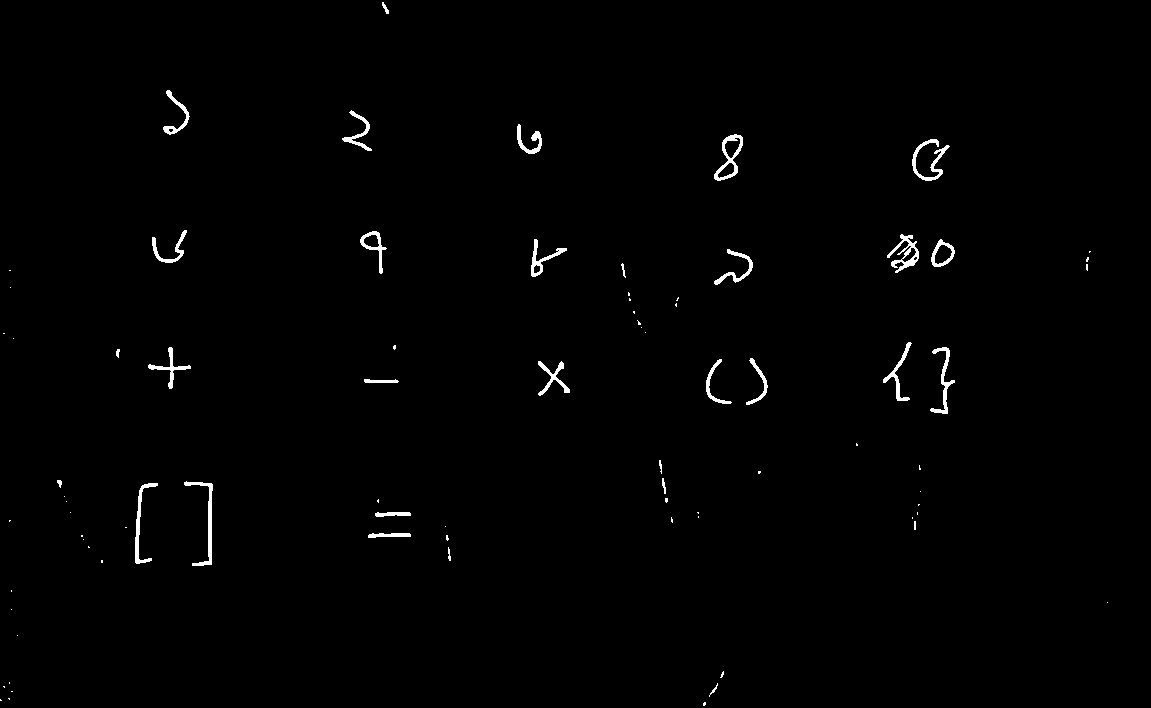 ১ ২ ৩ ৪ ৫
৬ ৭ ৮ ৯ ০
+ - × () {}
[] =